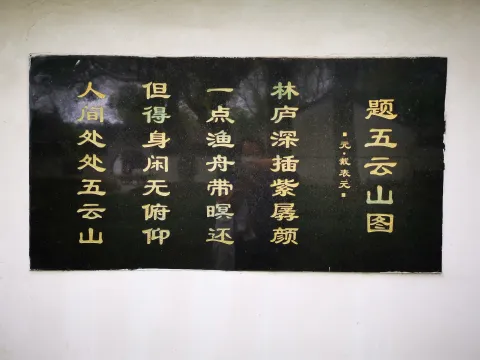 题五云山图
▪元·戴表元▪
林庐深插紫孱颜
一点渔舟带暝还
但得身闲无俯仰
人间处处五云山